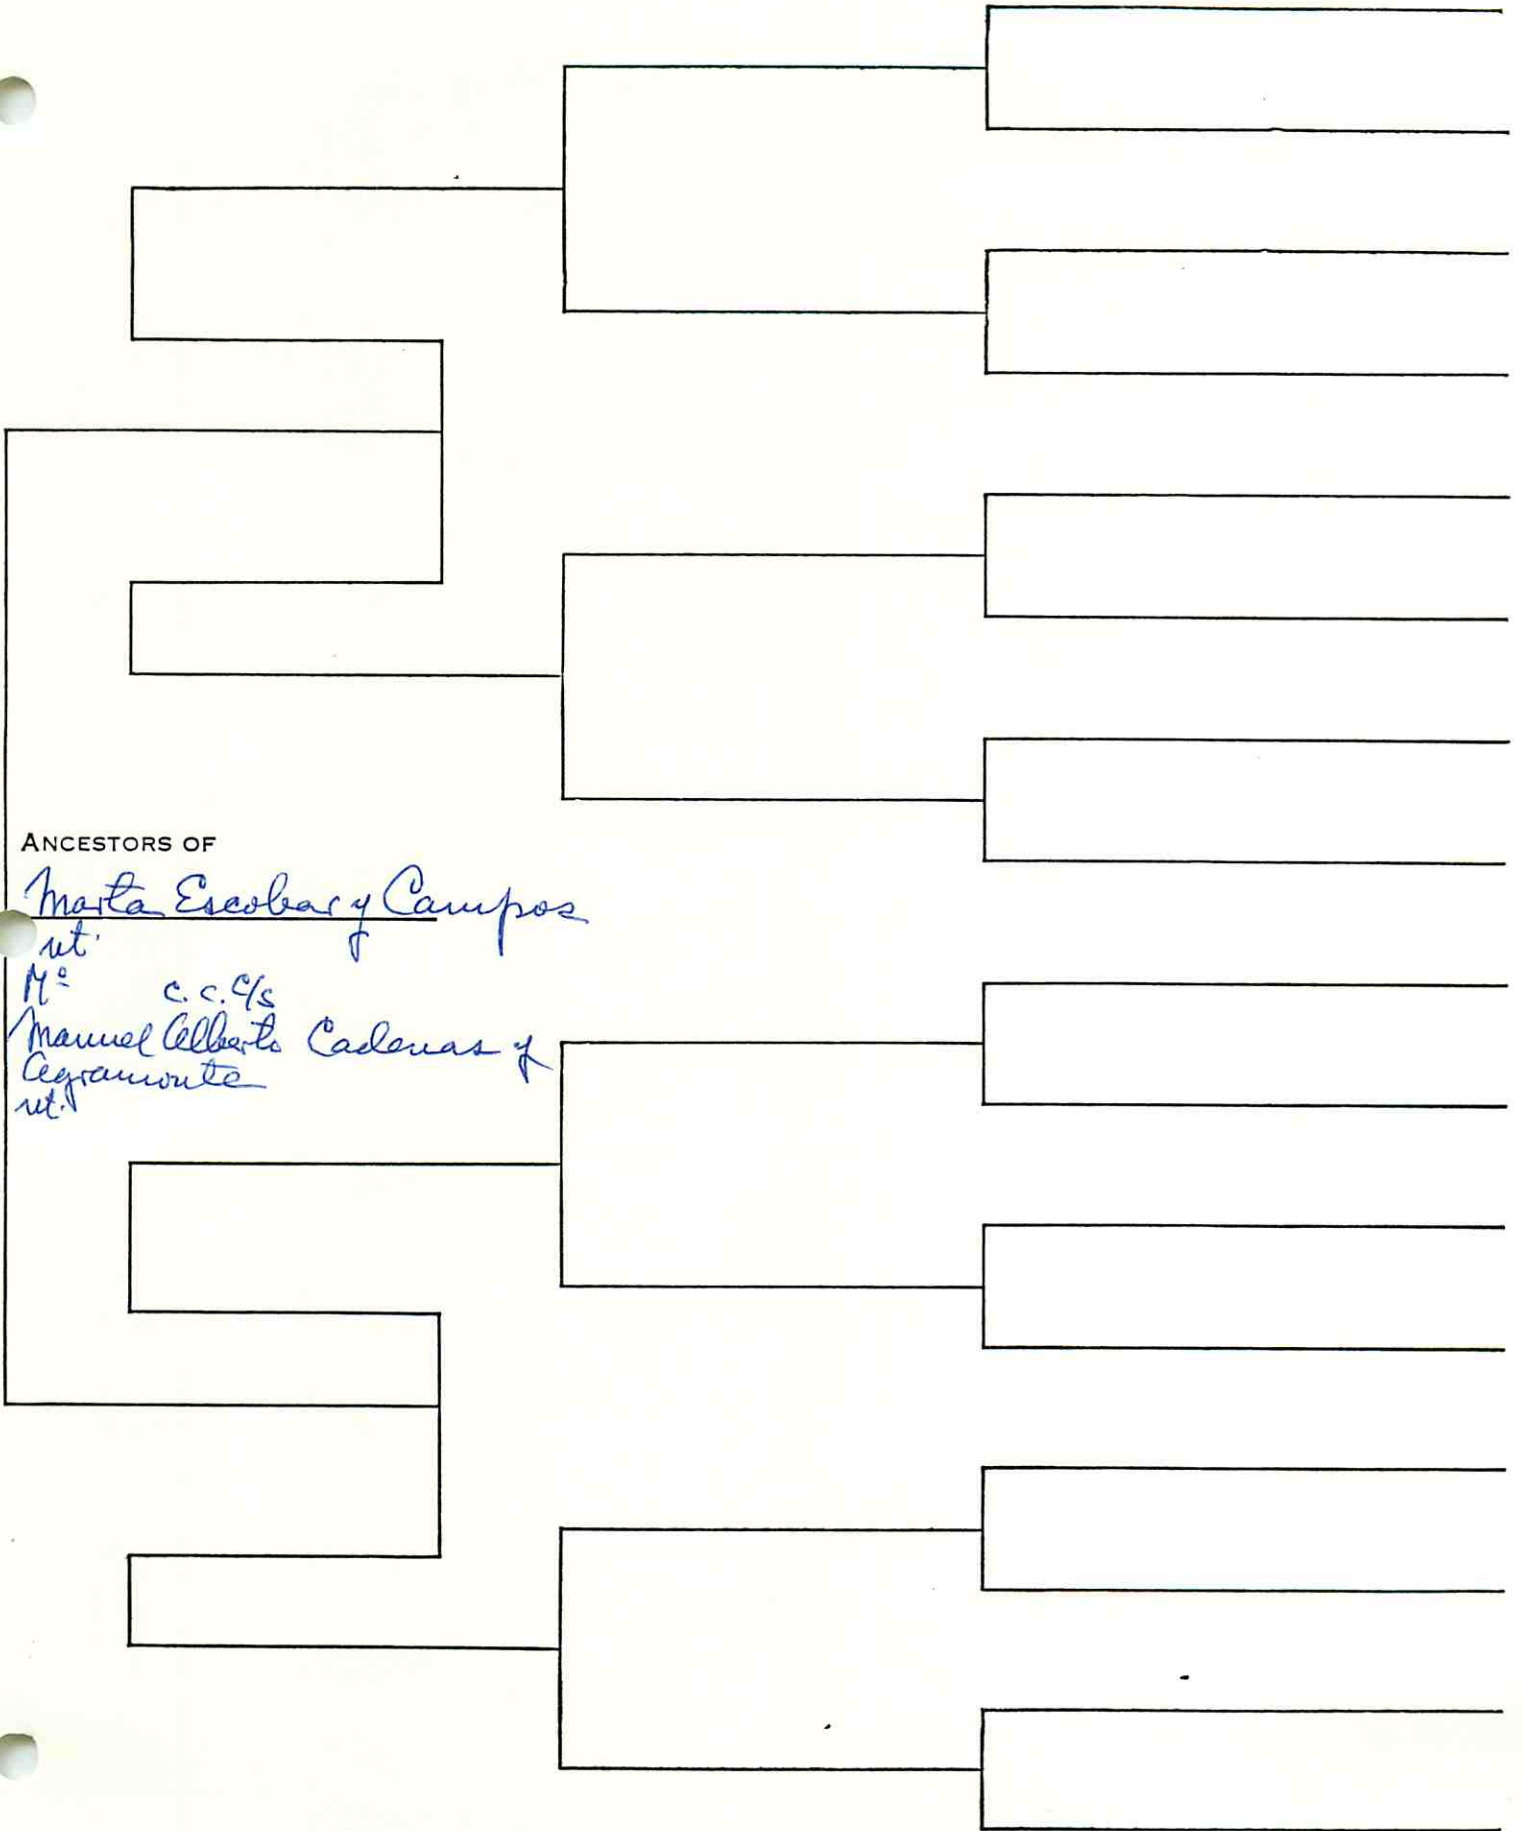 ANCESTORS OF
Marta Escobar y Campos
nt.
Mº c.c. c/s
Manuel Alberto Cadenas y
Agramonte
nt.